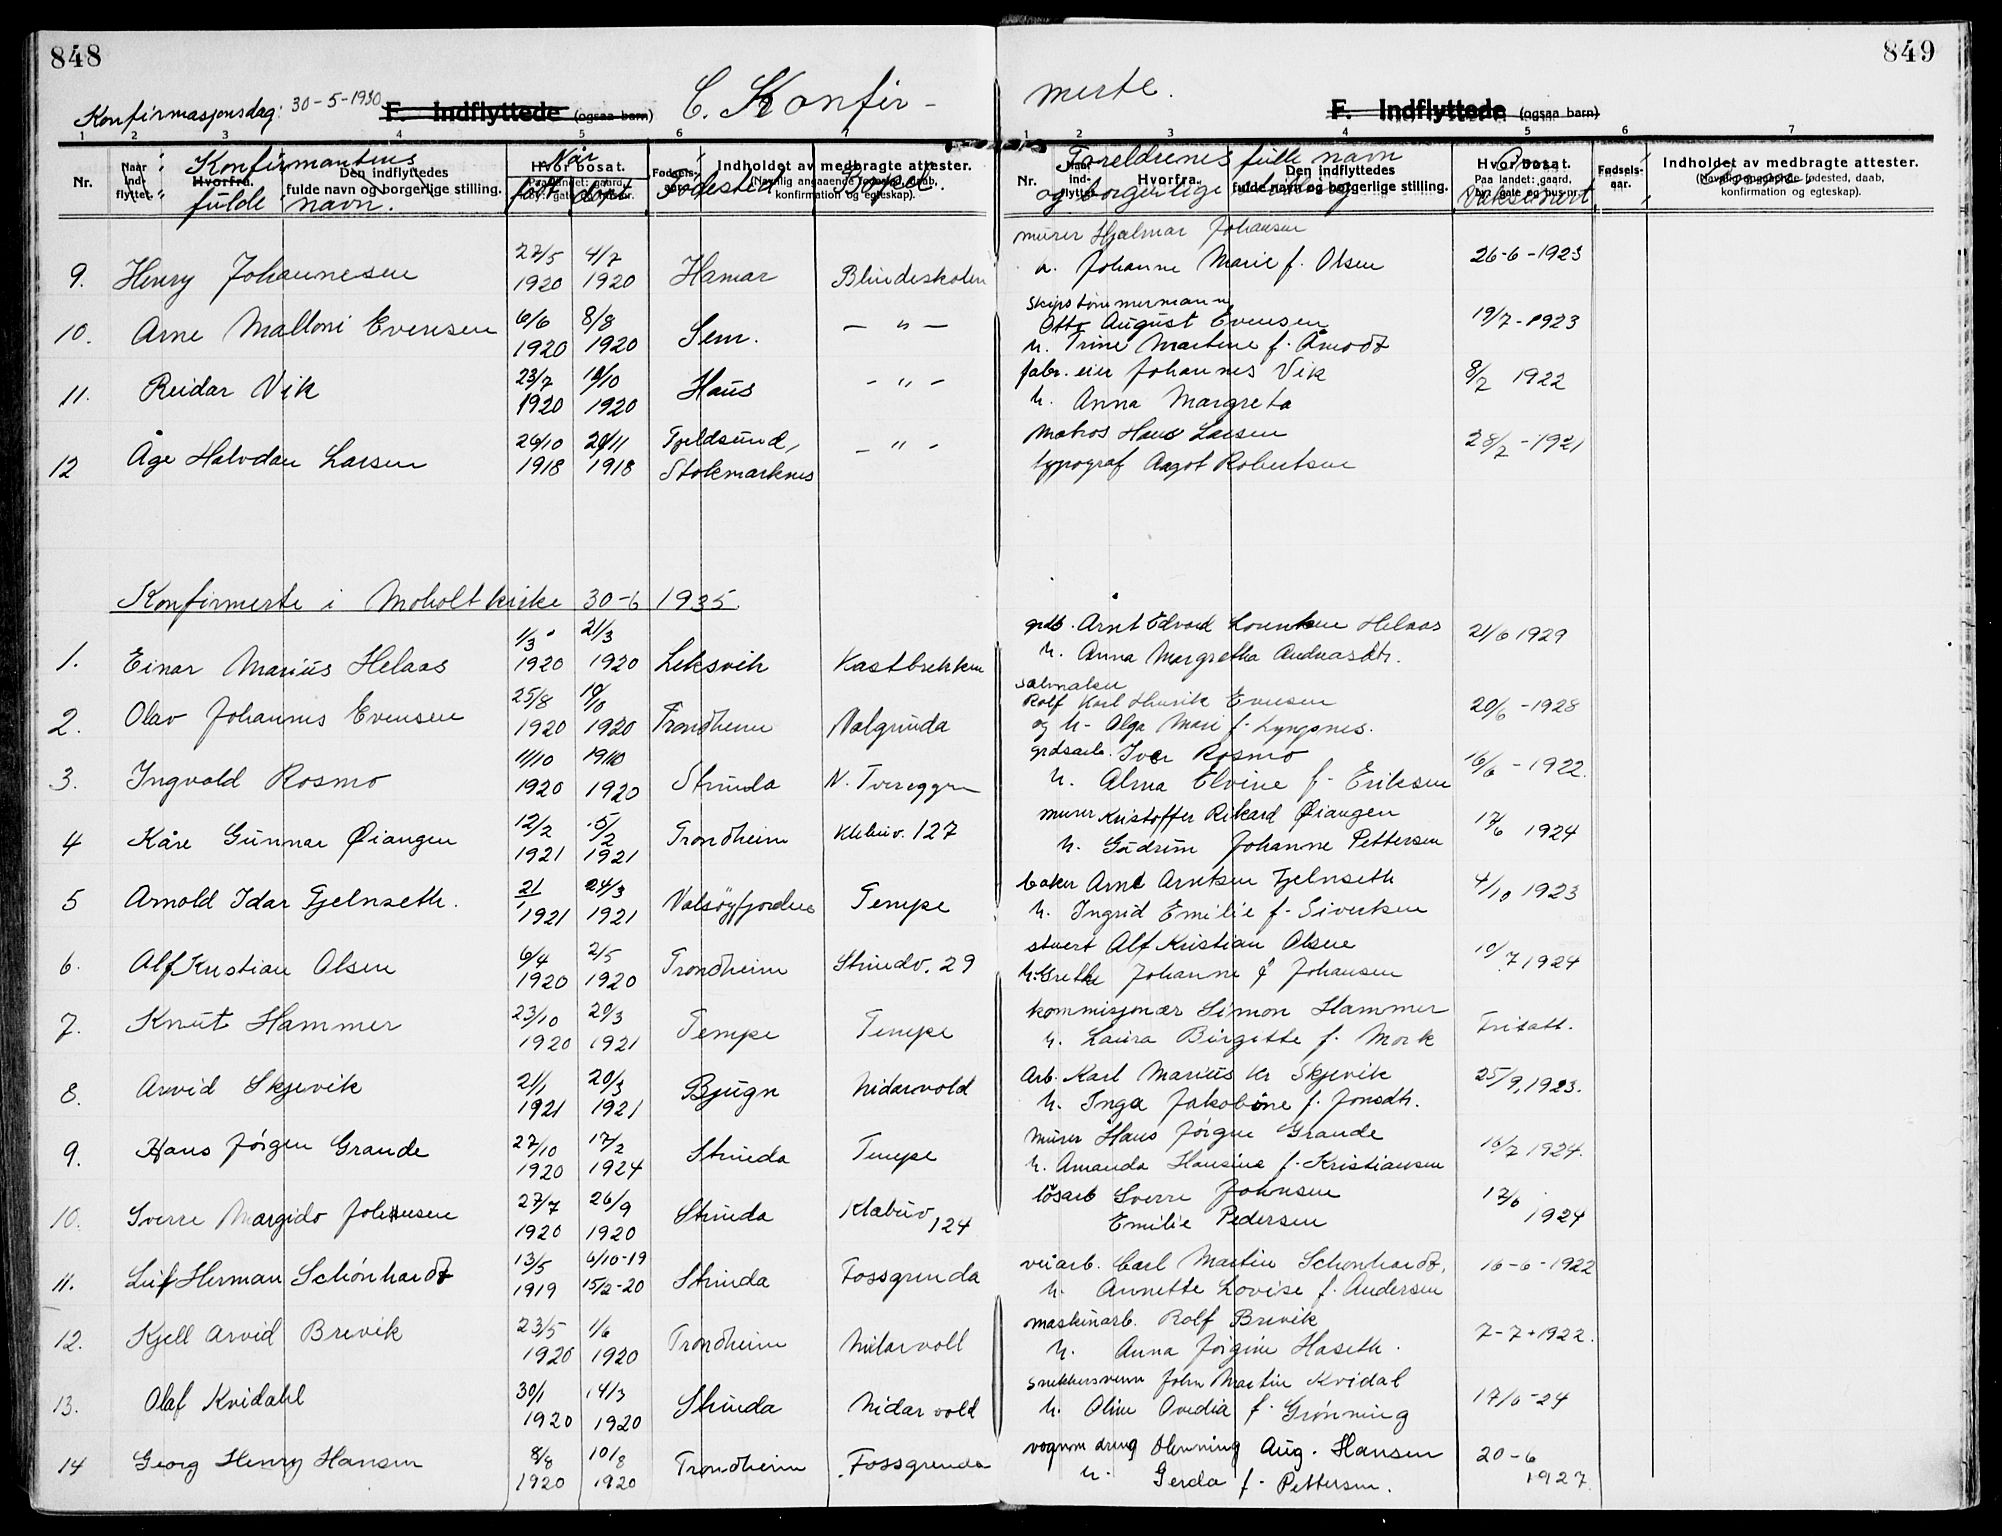 848
Konfirmasjonsdag: 30-5-1930
F. Indflyttede (ogsaa barn)
C. Konfir-
1 2 3 4 5 6 7
Nr.
Naar indflyttet.
Hvorfra.
Den indflyttedes fulde navn og borgerlige stilling.
Konfirmantens fulde navn.
Hvor bosat.
Når født døpt
Fødested
Indholdet av medbragte attester.
(Navnlig angaaende fødested, daab, konfirmation og egteskap).
Bopel.
9. Henry Johannesen 27/5 1920 4/7 1920 Hamar Blindeskolen
10. Arne Malloni Evensen 6/6 1920 8/8 1920 Sem. — " —
11. Reidar Vik 23/7 1920 10/10 1920 Haus - " -
12 Åge Halvdan Larsen 26/10 1918 20/11 1918 Fjeldsund, Stokmarknes - " -
Konfirmerte i Moholt kirke 30-6 1935.
1. Einar Marius Helaas 1/3 1920 21/3 1920 Leksvik Kastbrekken
2. Olav Johannes Evensen 25/8 1920 10/10 1920 Trondheim Valgrinda
3. Ingvald Rosmo 11/10 1920 19/10 1920 Strinda N. Tvereggen
4 Kåre Gunnar Øiangen 12/2 1921 5/2 1921 Trondheim Klæbuv. 127
5 Arnold Idar Fjelnseth. 21/1 1921 24/3 1921 Valsøyfjorden Tempe
6. Alf Kristian Olsen 6/4 1920 2/5 1920 Trondheim Strindv. 29
7. Knut Hammer 23/10 1920 20/3 1921 Tempe Tempe
8. Arvid Skjevik 21/1 1921 20/3 1921 Bjugn Nidarvold
9. Hans Jørgen Grande 27/10 1920 17/2 1924 Strinda Tempe
10. Sverre Margido Johnsen 27/7 1920 26/9 1920 Strinda Klæbuv 124
11. Leif Herman Schönhardt 13/5 1919 6/10-19 15/2-20 Strinda Fossgrenda
12. Kjell Arvid Brevik 23/5 1920 1/6 1920 Trondheim Nidarvoll
13. Olaf Kvidahl 30/1 1920 14/3 1920 Strinda Nidarvold
14 Georg Henry Hansen 8/8 1920 10/8 1920 Trondheim Fossgrenda
849
merte.
F. Indflyttede (ogsaa barn)
1 2 3 4 5 6 7
Nr.
Naar indflyttet.
Hvorfra.
Den indflyttedes fulde navn og borgerlige stilling.
Foreldrenes fulle navn og borgerlige stilling
Hvor bosat.
Paa landet: gaard, i by: gate og hus nr.
vaksinert
Fødselsaar.
Indholdet av medbragte attester.
(Navnlig angaaende fødested, daab, konfirmation og egteskap).
murer Hjalmar Johansen
h. Johanne Marie f. Olsen 26-6-1923
skipstømmermann
Otto August Evensen
h. Trine Martine f. Åmodt 19/7-1923
fabr. eier Johannes Vik
h. Anna Margreta 8/2 1922
Matros Hans Larsen
typograf Aagot Robertsen 28/2-1921
grdb. Arnt Edvard Lorentsen Helaas
h. Anna Margretha Andreasdtr. 21/6 1929
salmaker
Rolf Karl Henrik Evensen
og h. Alga Mari f. Lyngsnes. 20/6-1928
grdsarb. Iver Rosmo
h. Alma Elvine f. Eriksen 16/6-1922.
murer Kristoffer Rikard Øiangen
h. Gudrun Johanne Pettersen 17/6 1924
baker Arnt Arntsen Fjelnseth
h. Ingrid Emilie f. Sivertsen 4/10 1923
stuert Alf Kristian Olsen
h. Grethe Johanne f Johansen 10/7 1924
kommisjonær Simon Hammer
h. Laura Birgitte f. Mork Fritatt.
Arb. Karl Marius Kr Skjevik
h. Inga Jakobine f. Jonsdtr. 25/9, 1923.
Murer Hans Jørgen Grande
h. Amanda Hansine f. Kristiansen 16/7 1924.
løsarb Sverre Johnsen
Emilie Pedersen 17/6 1924
veiarb. Carl Martin Schonhardt,
h. Annette Lovise f. Andersen 16-6-1922
maskinarb. Rolf Brevik
h. Anna Jørgine Haseth. 7-7-1922.
snekkersvenn John Martin Kvidal
h. Oline Ovedia f. Grønning 17/6-24
vognm dreng Henning Aug. Hansen
h. Gerda f. Pettersen. 20-6 1927